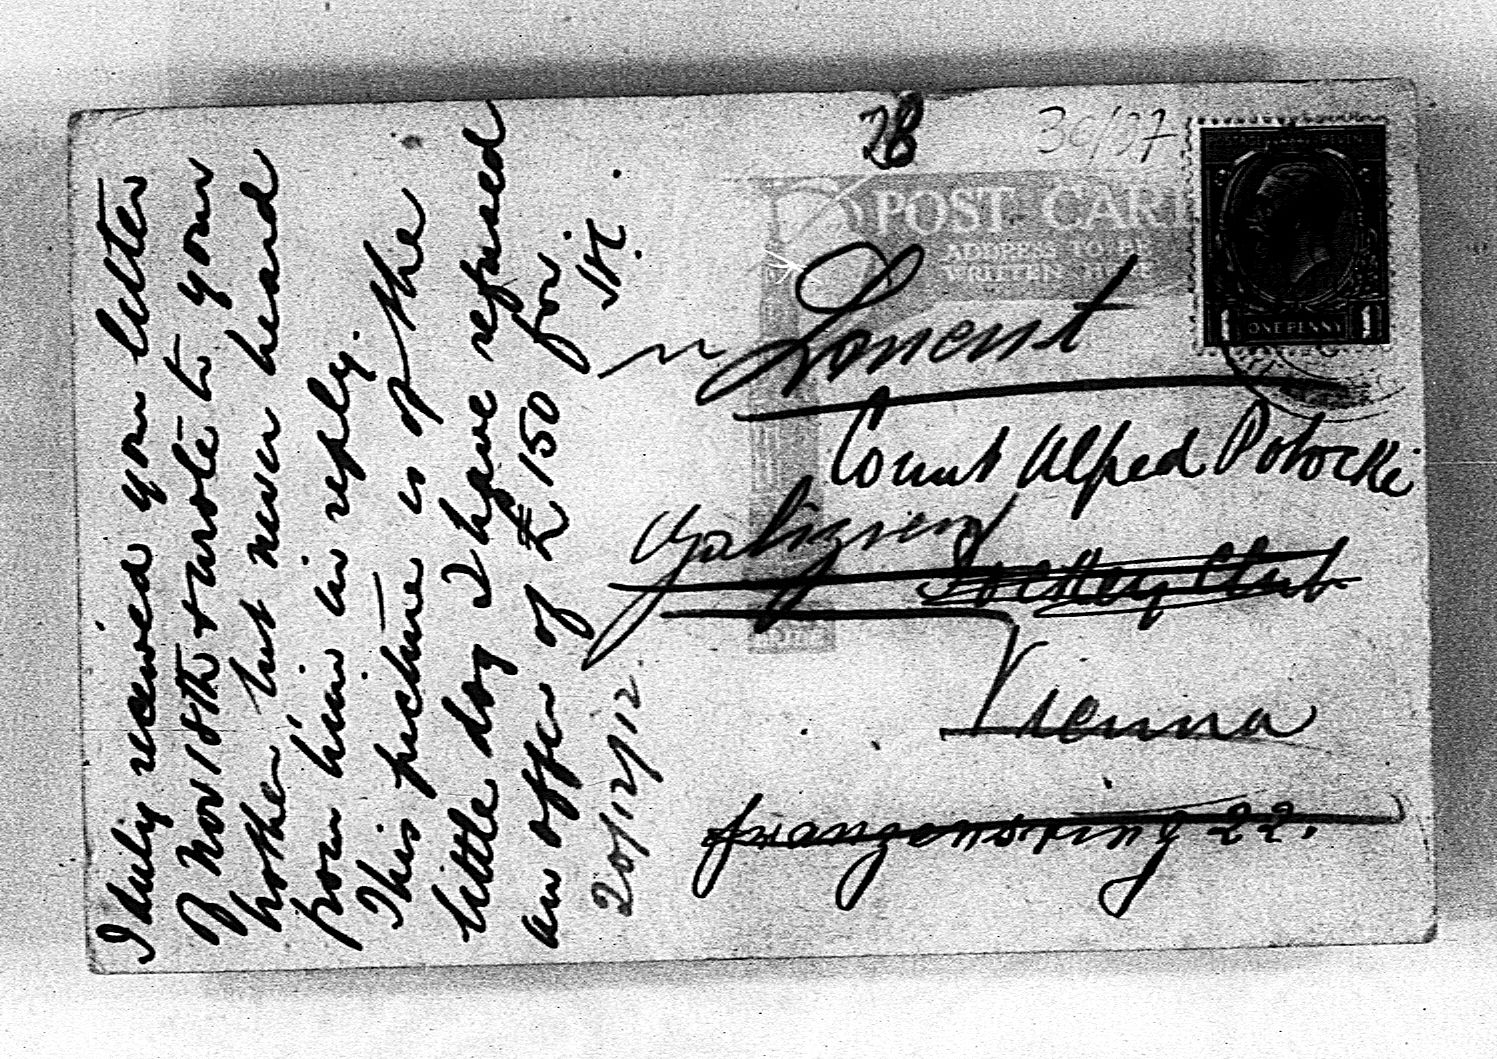 I duly received your letter
of Nov 18th & wrote to your
brother but never heard
from him in reply.
This picture is of the
little dog I have refused
an offer of £150 for
20/12/12
28
30/37
POST CARD
ADDRESS TO BE
WRITTEN HERE
ONE PENNY
Count Alfred Potocki
Jockey Club
Vienna
franzensring 22.